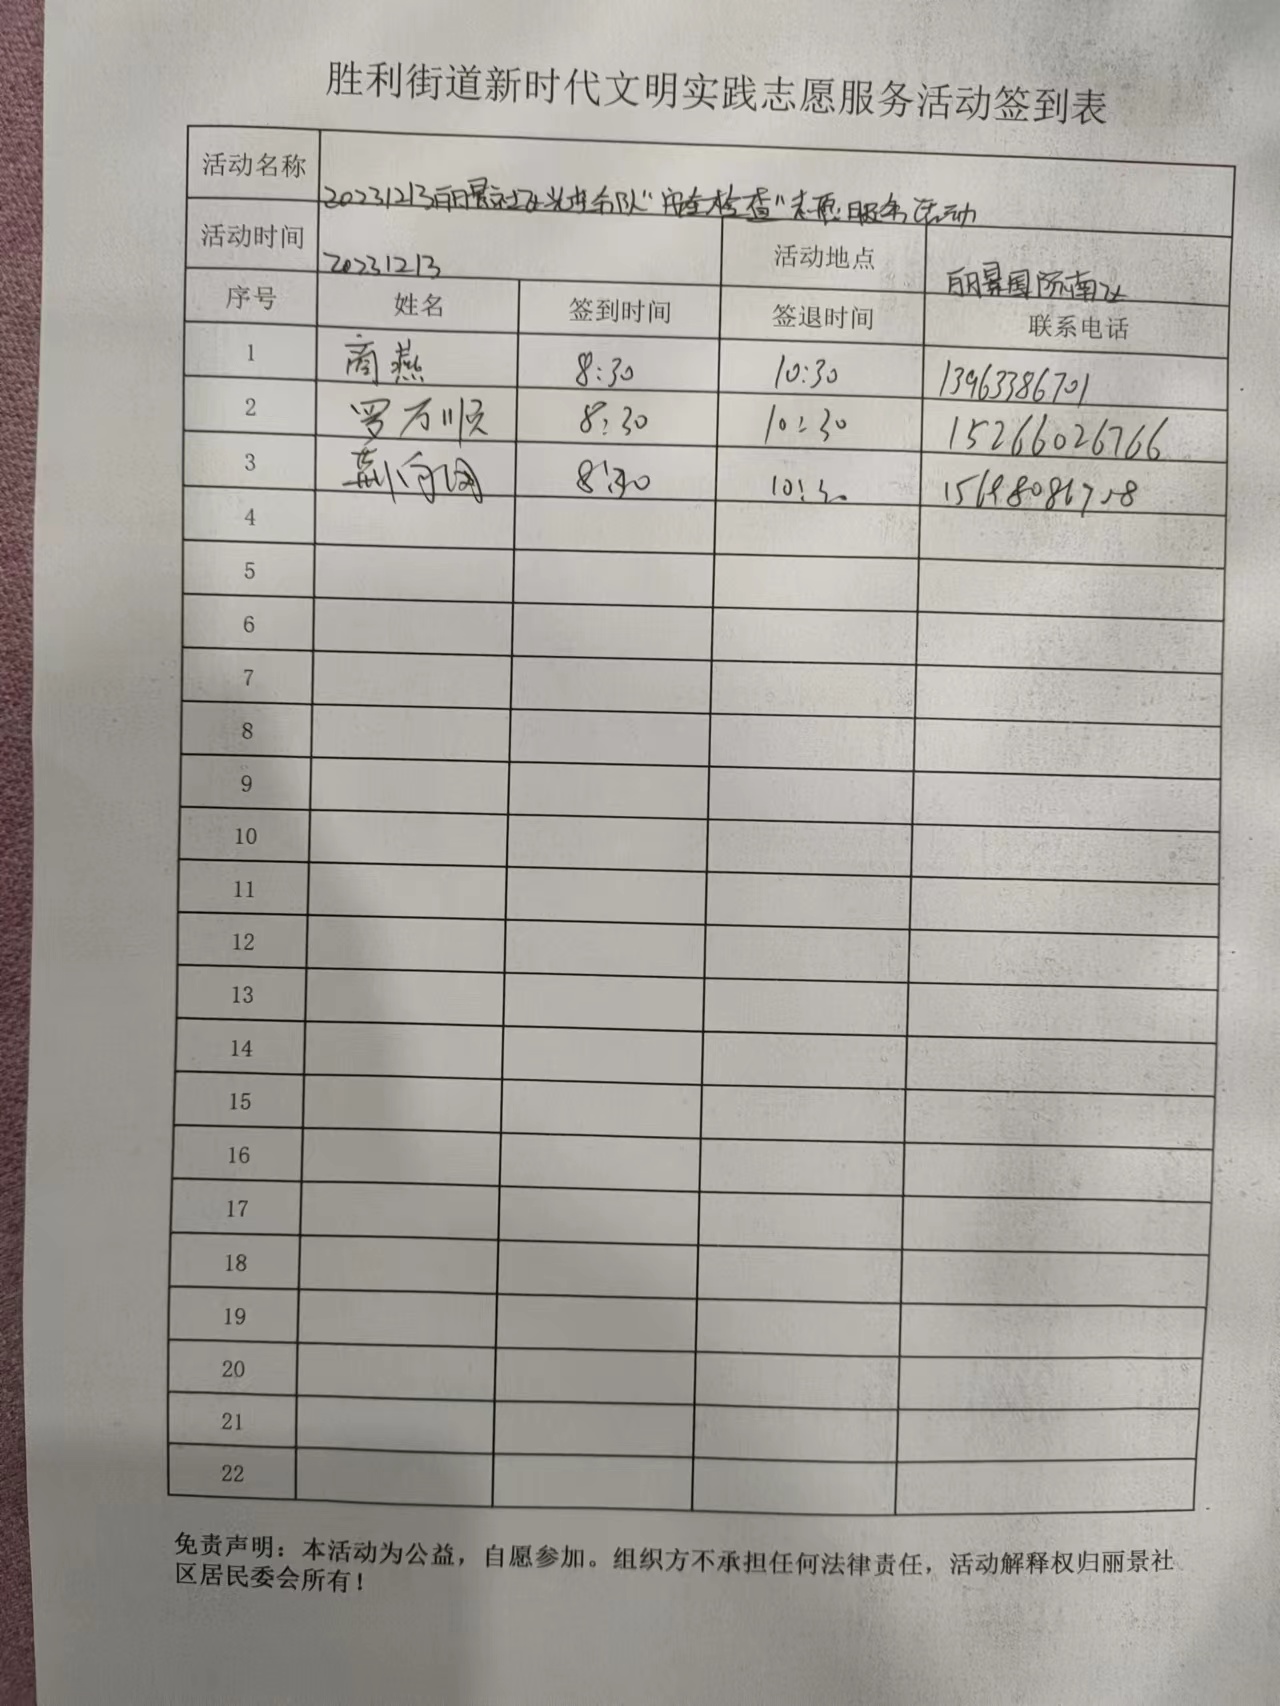 胜利街道新时代文明实践志愿服务活动签到表
活动名称 20231213丽景社区先进分队“安全检查”志愿服务活动
活动时间 20231213 活动地点 丽景国际南区
序号 姓名 签到时间 签退时间 联系电话
1 商燕 8:30 10:30 13963386701
2 罗万顺 8:30 10:30 15266026766
3 8:30 10:30
4
5
6
7
8
9
10
11
12
13
14
15
16
17
18
19
20
21
22
免责声明：本活动为公益，自愿参加。组织方不承担任何法律责任，活动解释权归丽景社
区居民委会所有！